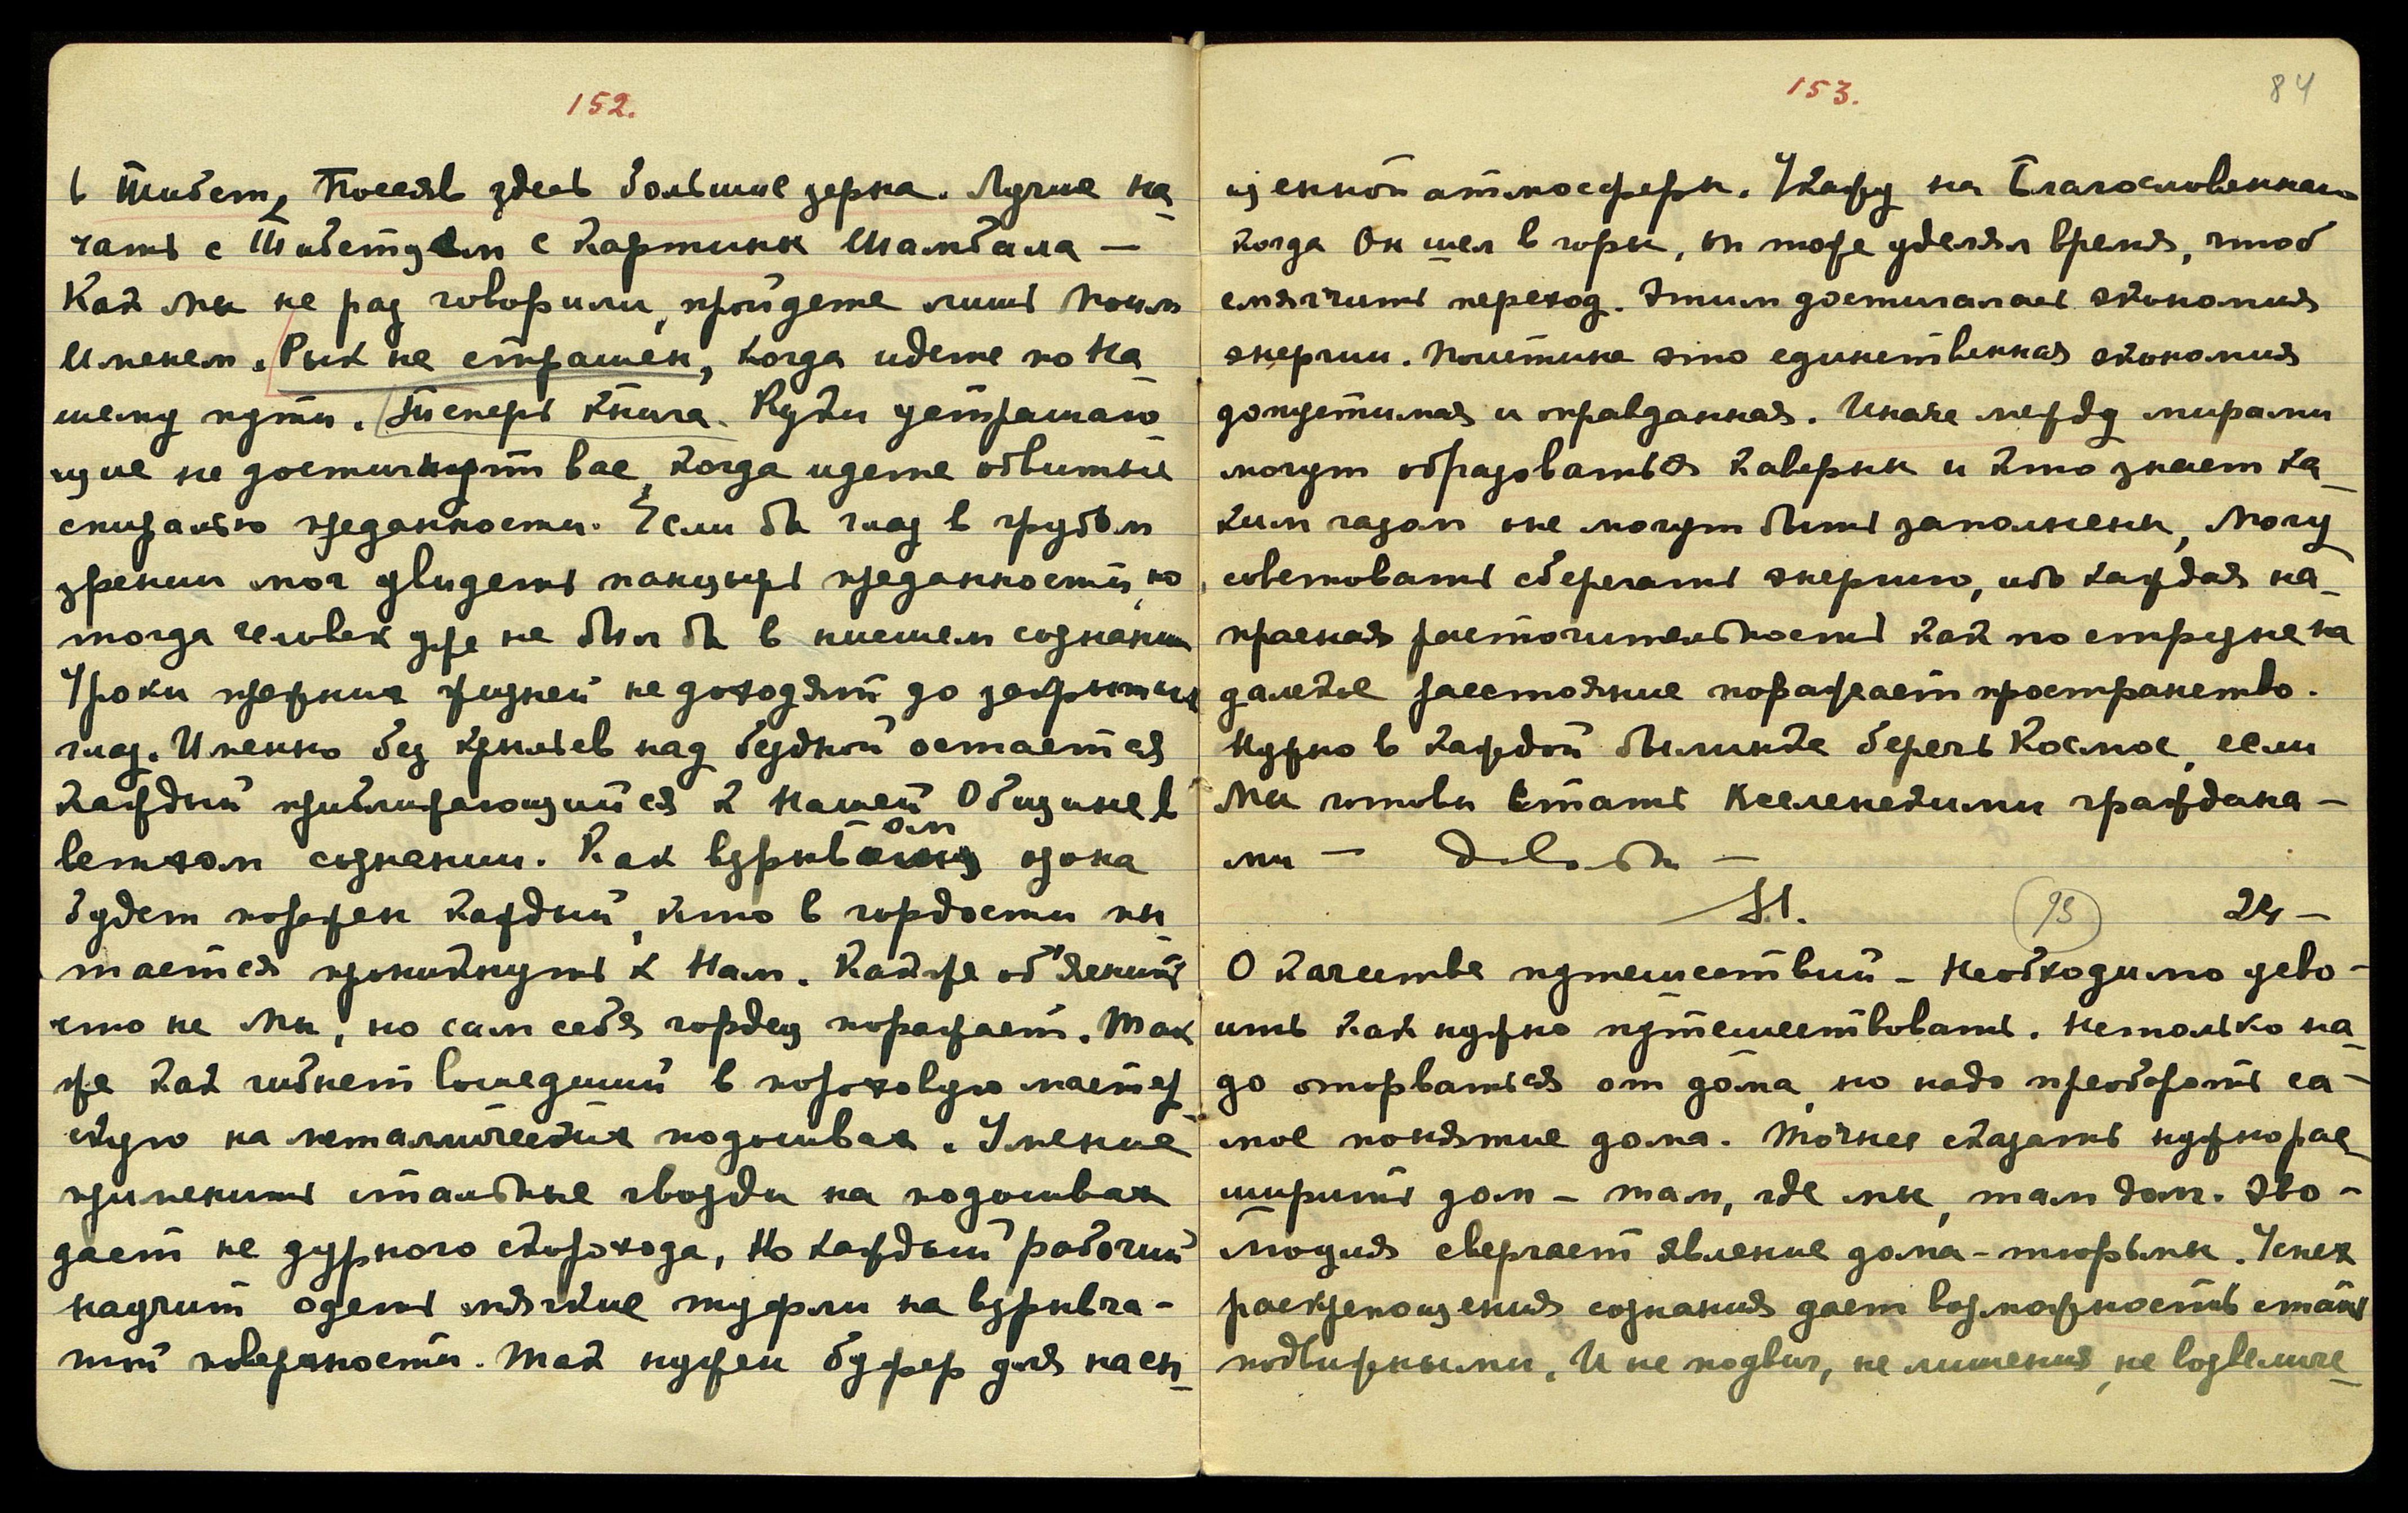 152.
в Тибет, Посеяв здесь большие зерна. Лучше на_
чать с Тибетцем с картины Шамбала —
Как мы не раз говорили, пройдете лишь Моим
Именем. Рык не страшен, когда идете по На_
шему пути. Теперь книга. Руки устрашаю_
щие не достигнут вас, когда идете обвитые
спиралью преданности. Если бы глаз в грубом
зрении мог увидеть панцырь преданности, но
тогда человек уже не был бы в низшем сознании
Уроки прежних жизней не доходят до закрытых
глаз. Именно без крыльев над бездной остается
каждый приближающийся к Нашей Общине в
ветхом сознании. Как взрывом озона
будет поражен каждый, кто в гордости пы_
тается проникнуть к Нам. Как же об'яснить
что не Мы, но сам себя гордец поражает. Так
же как гибнет вошедший в пороховую мастер_
скую на металлических подошвах. Умение
применить стальные гвозди на подошвах
дает не дурного скорохода, Но каждый рабочий
научит одеть мягкие туфли на взрывча-
той поверхности. Так нужен буфер для насы_
153.
84
щенной атмосферы. Укажу на Благословенного
когда Он шел в горы, он тоже уделял время, чтоб
смягчить переход. Этим достигалась экономия
энергии. Поистине это единственная экономия
допустимая и оправданная. Иначе между мирами
могут образоваться каверны и кто знает ка_
ким газом оне могут быть заполнены, Могу
советовать сберегать энергию, ибо каждая на_
прасная расточительность как по струне на
далекое расстояние поражает пространство.
Нужно в каждой былинке беречь Космос, если
Мы готовы стать Вселенскими граждана —
ми — Довольно —
М.
93
24 —
О качестве путешествий — Необходимо усво —
ить как нужно путешествовать. Не только на_
до оторваться от дома, но надо преобороть са —
мое понятие дома. Точнее сказать нужно рас_
ширить дом — там, где мы, там дом. Эво —
люция свергает явление дома-тюрьмы. Успех
раскрепощения сознания дает возможность стать
подвижными. И не подвиг, не лишения, не возвеличе_